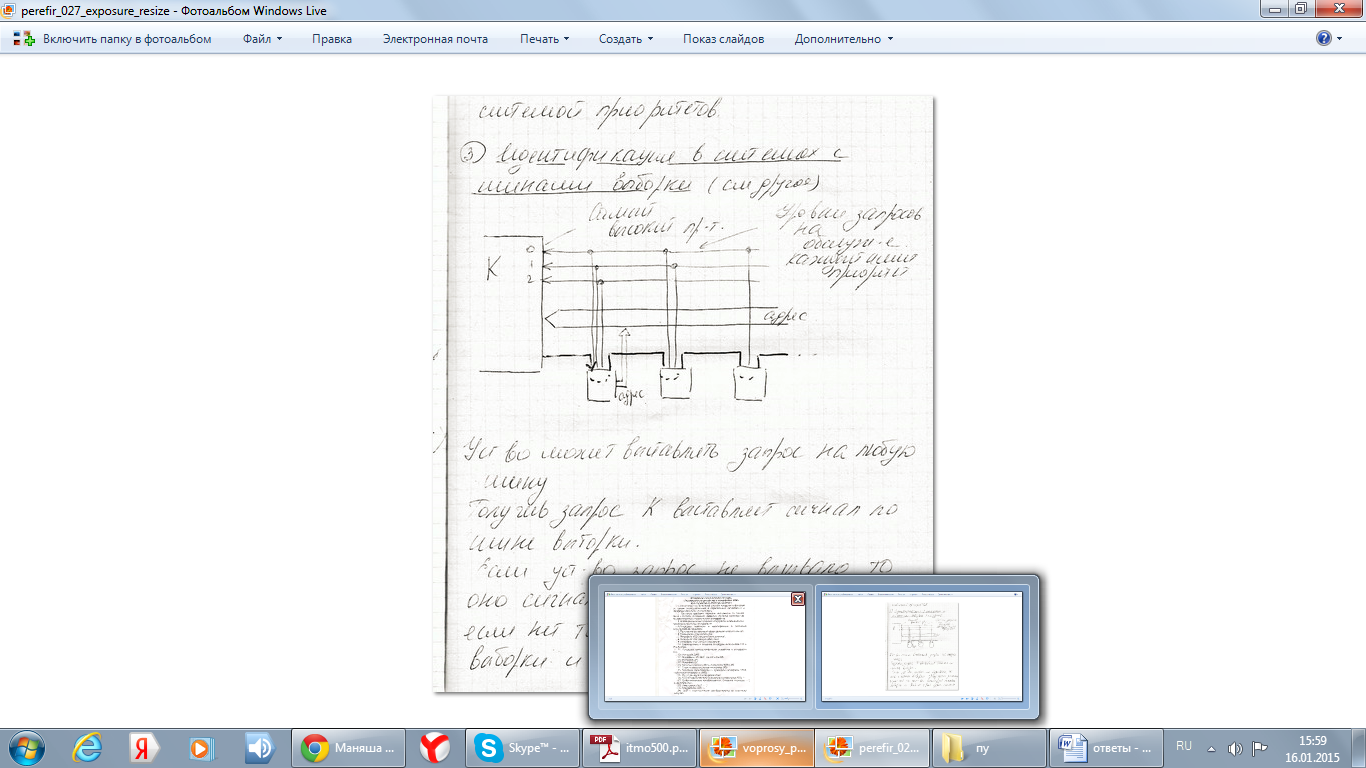 perefir_027_exposure_resize - Фотоальбом Windows Live
Включить папку в фотоальбом Файл Правка Электронная почта Печать Создать Показ слайдов Дополнительно
системой приоритетов
3 Идентификация в системах с
шинами выборки (см другое)
Самый
высокий пр-т.
Уровни запросов
на
обслуж-е
приоритет
К
0
1
2
адрес
адрес
Уст-во может выставлять запрос на любую
шину
Получив запрос К выставляет сигнал по
шине выборки.
Если уст-во запрос не
то
оно
если нет
выборки и
Маняша ...
Skype™ - ...
itmo500.p...
voprosy_p...
perefir_02...
пу
ответы - ...
RU
15:59
16.01.2015